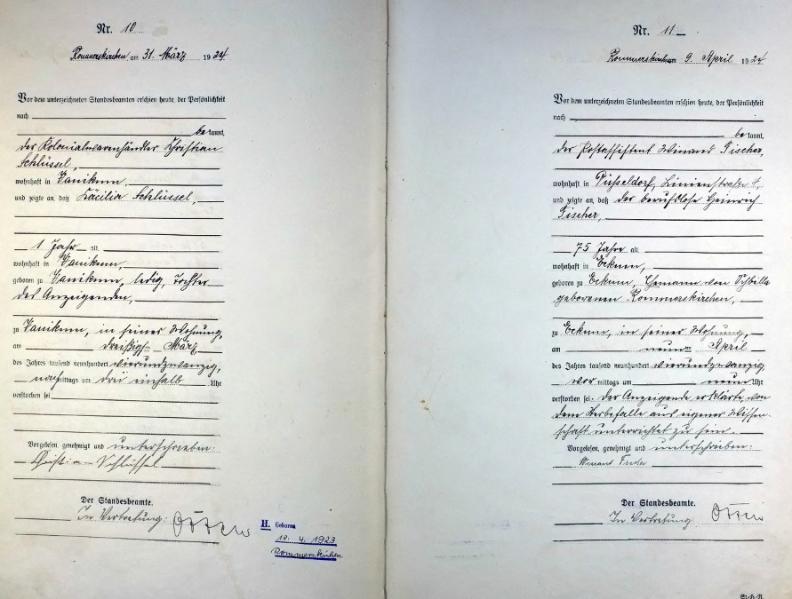 Nr. 10
Rommerskirchen, am 31. März 1924
Vor dem unterzeichneten Standesbeamten erschien heute, der Persönlichkeit
nach
bekannt,
der Kolonialwarenhändler Christian
Schlüssel,
wohnhaft in Vanikum,
und zeigte an, daß Cäcilia Schlüssel,
1 Jahr alt
wohnhaft in Vanikum,
geboren zu Vanikum, ledig, Tochter
des Anzeigenden,
zu Vanikum, in seiner Wohnung,
am dreißigsten März
des Jahres tausend neunhundert vierundzwanzig,
nachmittags um drei einhalb Uhr
verstorben sei
Vorgelesen, genehmigt und unterschrieben:
Christian Schlüssel
Der Standesbeamte.
In Vertretung:
H. Geboren
12. 4. 1923
Rommerskirchen
Nr. 11
Rommerskirchen 9. April 1924
Vor dem unterzeichneten Standesbeamten erschien heute, der Persönlichkeit
nach
bekannt,
der Postassistent Winand Fischer,
wohnhaft in Düsseldorf, Linienstraße
und zeigte an, daß der berufslose Heinrich
Fischer,
75 Jahre alt
wohnhaft in Eckum,
geboren zu Eckum, Ehemann von Sybilla
geborenen Rommerskirchen,
zu Eckum, in seiner Wohnung,
am neunten April
des Jahres tausend neunhundert vierundzwanzig
vormittags um neun Uhr
verstorben sei. Der Anzeigende erklärte, von
dem Sterbefalle aus eigener Wissen-
schaft unterrichtet zu sein.
Vorgelesen, genehmigt und unterschrieben:
Winand Fischer
Der Standesbeamte.
In Vertretung